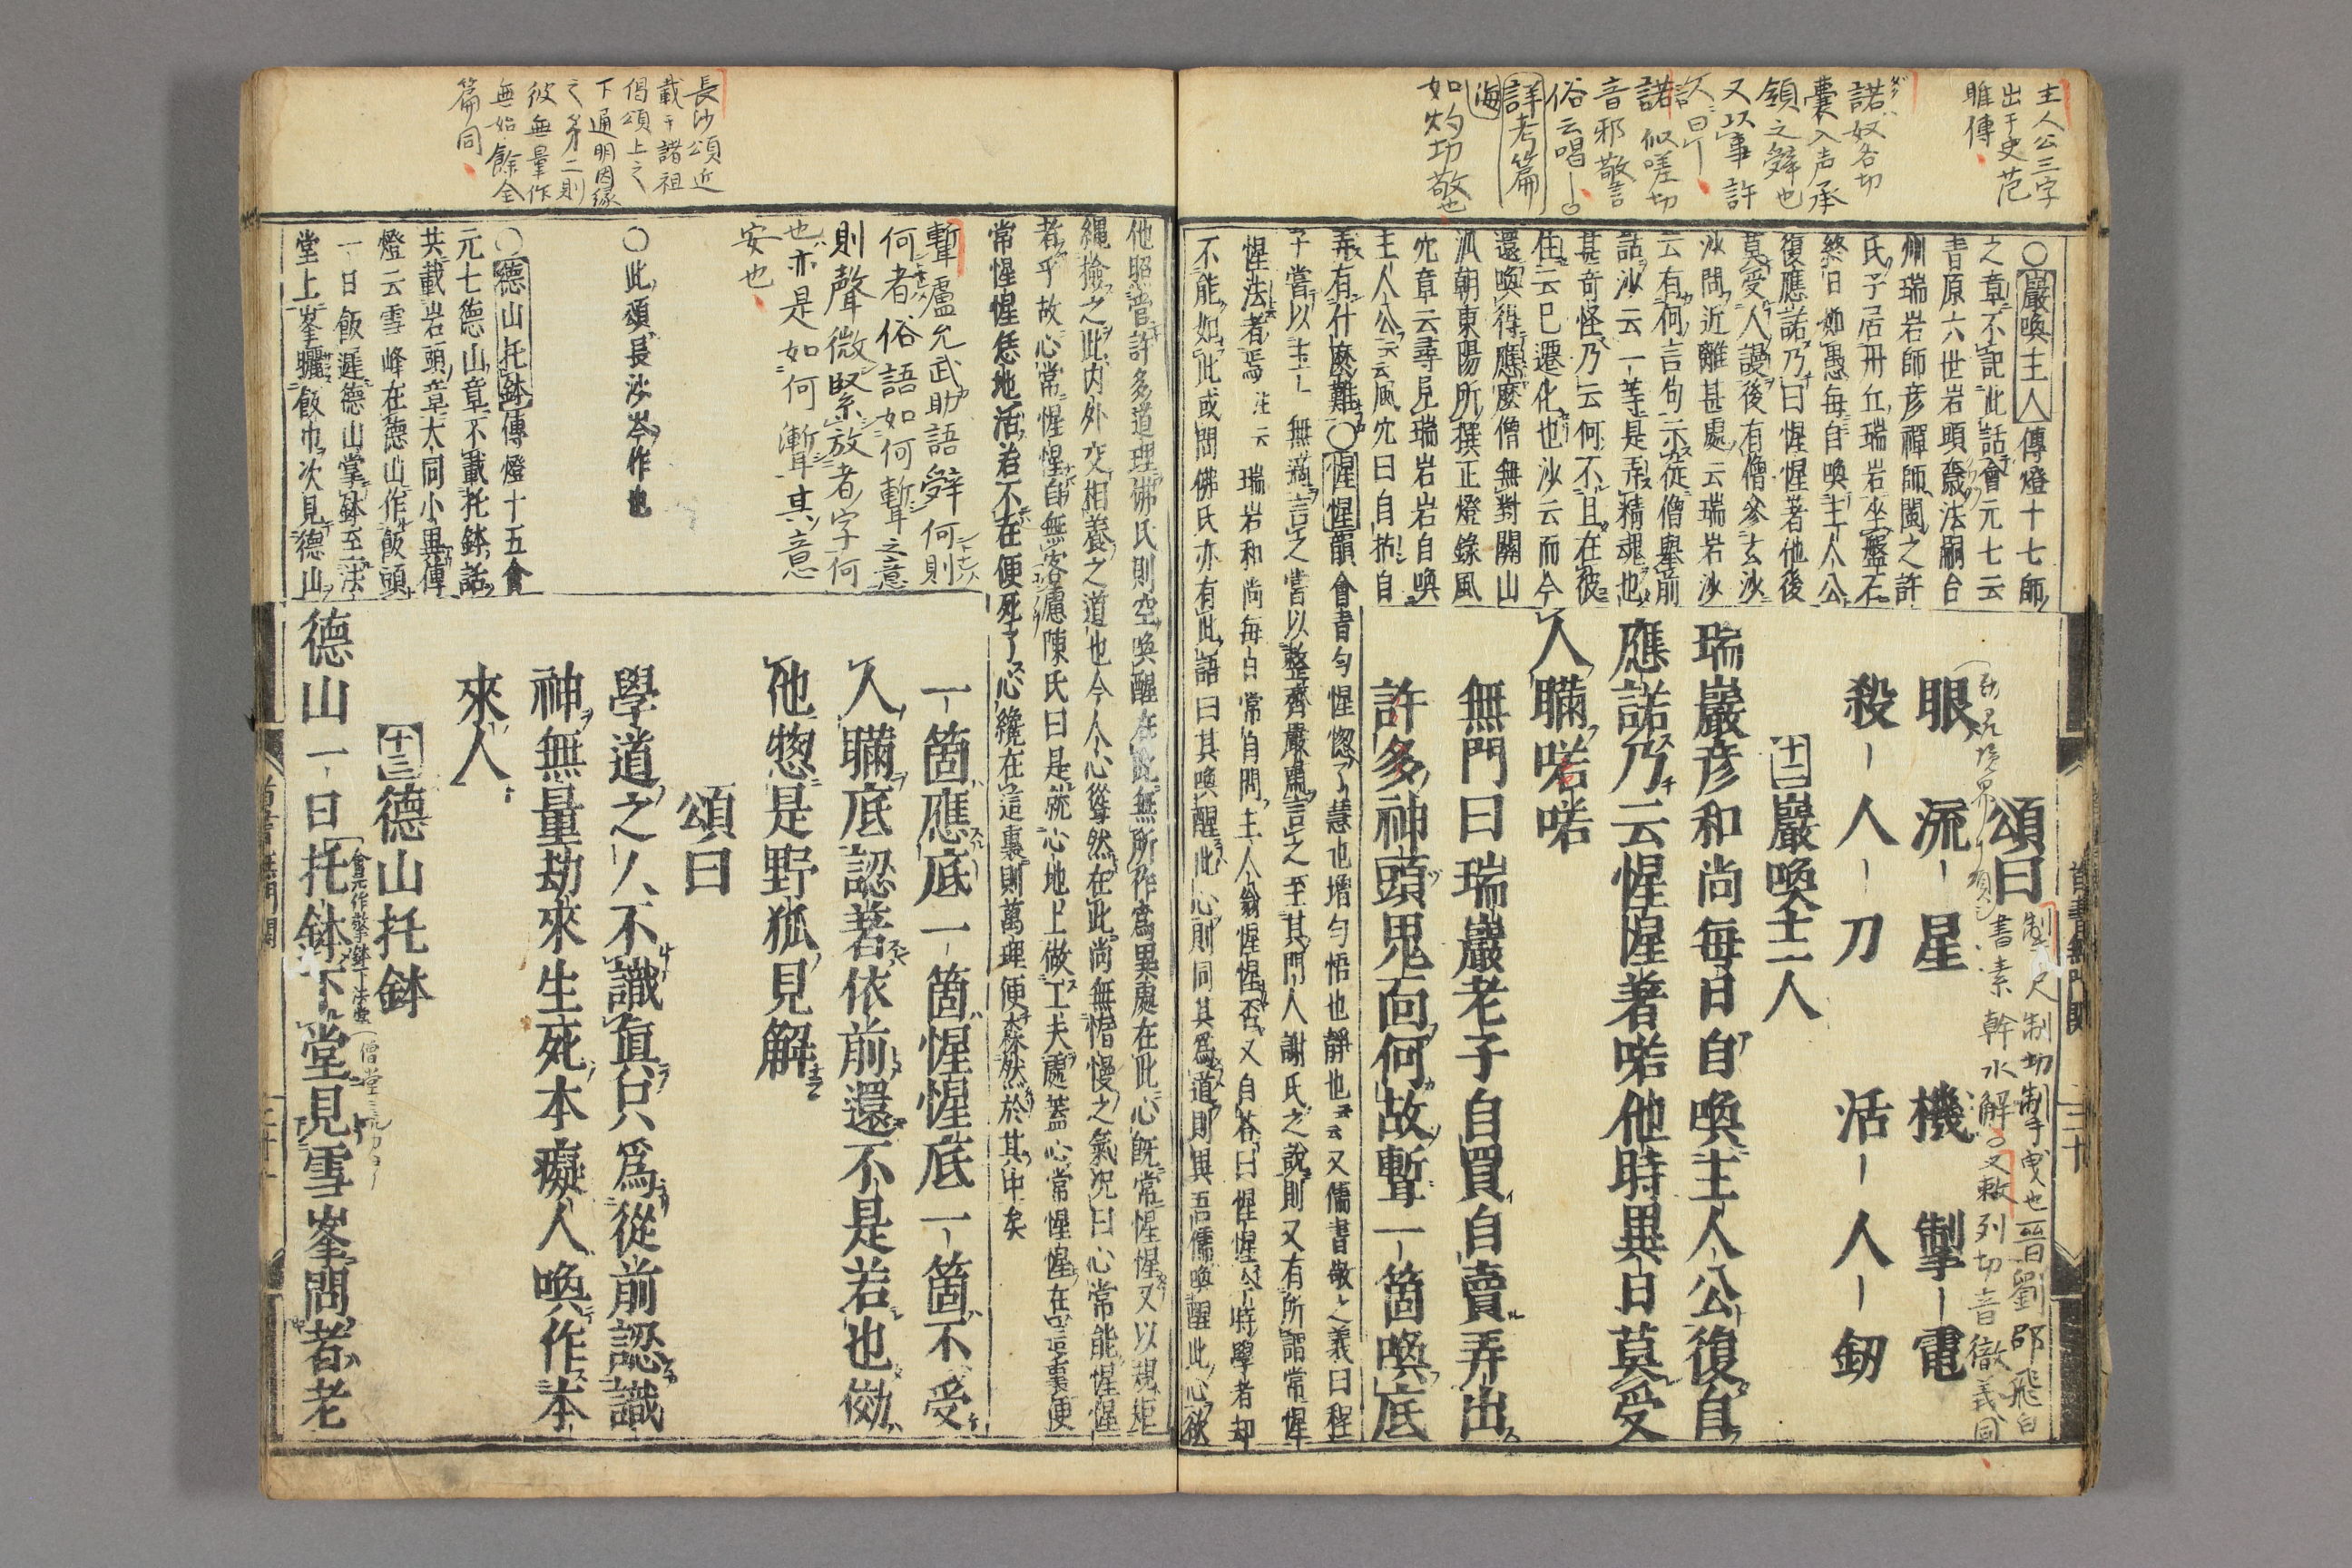 主人公三字
出于史范
雎傳
諾奴各切
囊入声承
領之辞也
又以事許
人曰｜
諾似嗟切
音邪敬言
俗云唱｜
詳考篇
海
如灼切敬也
〇巖喚主人傳燈十七師
之章不記此話會元七云
青原六世岩頭奯法嗣台
州瑞岩師彦禪師閩之許
氏子居丹丘瑞岩坐盤石
終日如愚每自喚主人公
復應諾乃曰惺惺著他後
莫受人謾後有僧參玄沙
沙問近離甚處云瑞岩沙
云有何言句示徒僧舉前
話沙云一等是弄精魂也
甚奇怪乃云何不且在彼
住云已遷化也沙云而今
還喚得應麽僧無對關山
派朝東陽所撰正燈錄風
穴章云尋見瑞岩岩自喚
主人公云云風穴曰自拈自
弄有什麽難〇惺惺韻會青勻惺惚了慧也增勻悟也靜也云云又儒書敬之義曰程
子嘗以主一無適言之嘗以整齊嚴肅言之至其門人謝氏之說則又有所謂常惺
惺法者焉註云瑞岩和尚每日常自問主人翁惺惺否又自答曰惺惺今時學者却
不能如此或問佛氏亦有此語曰其喚醒此心則同其爲道則異吾儒喚醒此心欲
頌曰
制尺制切制手曳也晋劉邵飛白
書素幹水解又敕列切音徹義同
眼流星　機掣電
殺人刀　活人劒
十二巖喚主人
瑞巖彦和尚每日自喚主人公復自
應諾乃云惺惺著喏他時異日莫受
人瞞喏喏
無門曰瑞巖老子自買自賣弄出
許多神頭鬼面何故聻一箇喚底
首書無門關　三十
長沙頌近
載于諸祖
偈頌上之
下通明因緣
之第二則
彼無量作
無始餘全
篇同
他照管許多道理佛氏則空喚醒在此無所作爲異處在此心既常惺惺又以規矩
繩檢之此内外交相養之道也今人心聳然在此尚無惰慢之氣况曰心常能惺惺
者乎故心常惺惺自無客慮陳氏曰是就心地上做工夫處蓋心常惺惺在這裏便
常惺惺恁地活若不在便死了心纔在這裏則萬理便森然於其中矣
聻盧允武助語辞何則
何者俗語如何聻之意
則聲微緊放者字何
也亦是如何漸聻其意
安也
〇此頌長沙岑作也
〇德山托鉢傳燈十五會
元七德山章不載托鉢話
共載岩頭章大同小異傳
燈云雪峰在德山作飯頭
一日飯遲德山掌鉢至法
堂上峯曬飯巾次見德山
一箇應底一箇惺惺底一箇不受
人瞞底認著依前還不是若也傚
他惣是野狐見解
頌曰
學道之人不識眞只爲從前認識
神無量劫來生死本癡人喚作本
來人
十三德山托鉢
德山一日托鉢下堂見雪峯問者老
會元作擎鉢下法堂
首書無門關